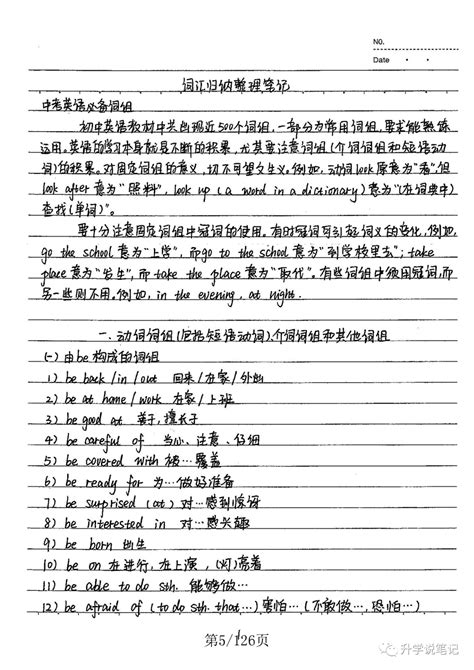 No.
Date
词汇归纳整理笔记
中考英语必备词组
初中英语教材中共出现近500个词组,一部分为常用词组,要求能熟练
运用。英语的学习本身就是不断的积累,尤其要注意词组(介词词组和短语动
词)的积累。对固定词组的意义,切不可望文生义。例如,动词look原意为"看",但
look after意为"照料",look up (a word in a dictionary)意为"(在词典中)
查找(单词)"。
要十分注意固定词组中冠词的使用。有时冠词可引起词义的变化,例如,
go the school意为"上学",而go to the school意为"到学校里去";take
place意为"发生",而take the place意为"取代"。有些词组中须用冠词,而
另一些则不用。例如,in the evening, at night.
一、动词词组(包括短语动词)、介词词组和其他词组
(一) 由be构成的词组
1) be back/in/out 回来/在家/外出
2) be at home/work 在家/上班
3) be good at 善于,擅长于
4) be careful of 当心、注意、仔细
5) be covered with 被…覆盖
6) be ready for 为…做好准备
7) be surprised (at) 对…感到惊讶
8) be interested in 对…感兴趣
9) be born 出生
10) be on 在进行,在上演,(灯)亮着
11) be able to do sth. 能够做…
12) be afraid of (to do sth. that…) 害怕…(不敢做…,恐怕…)
1
第5/126页
升学说笔记